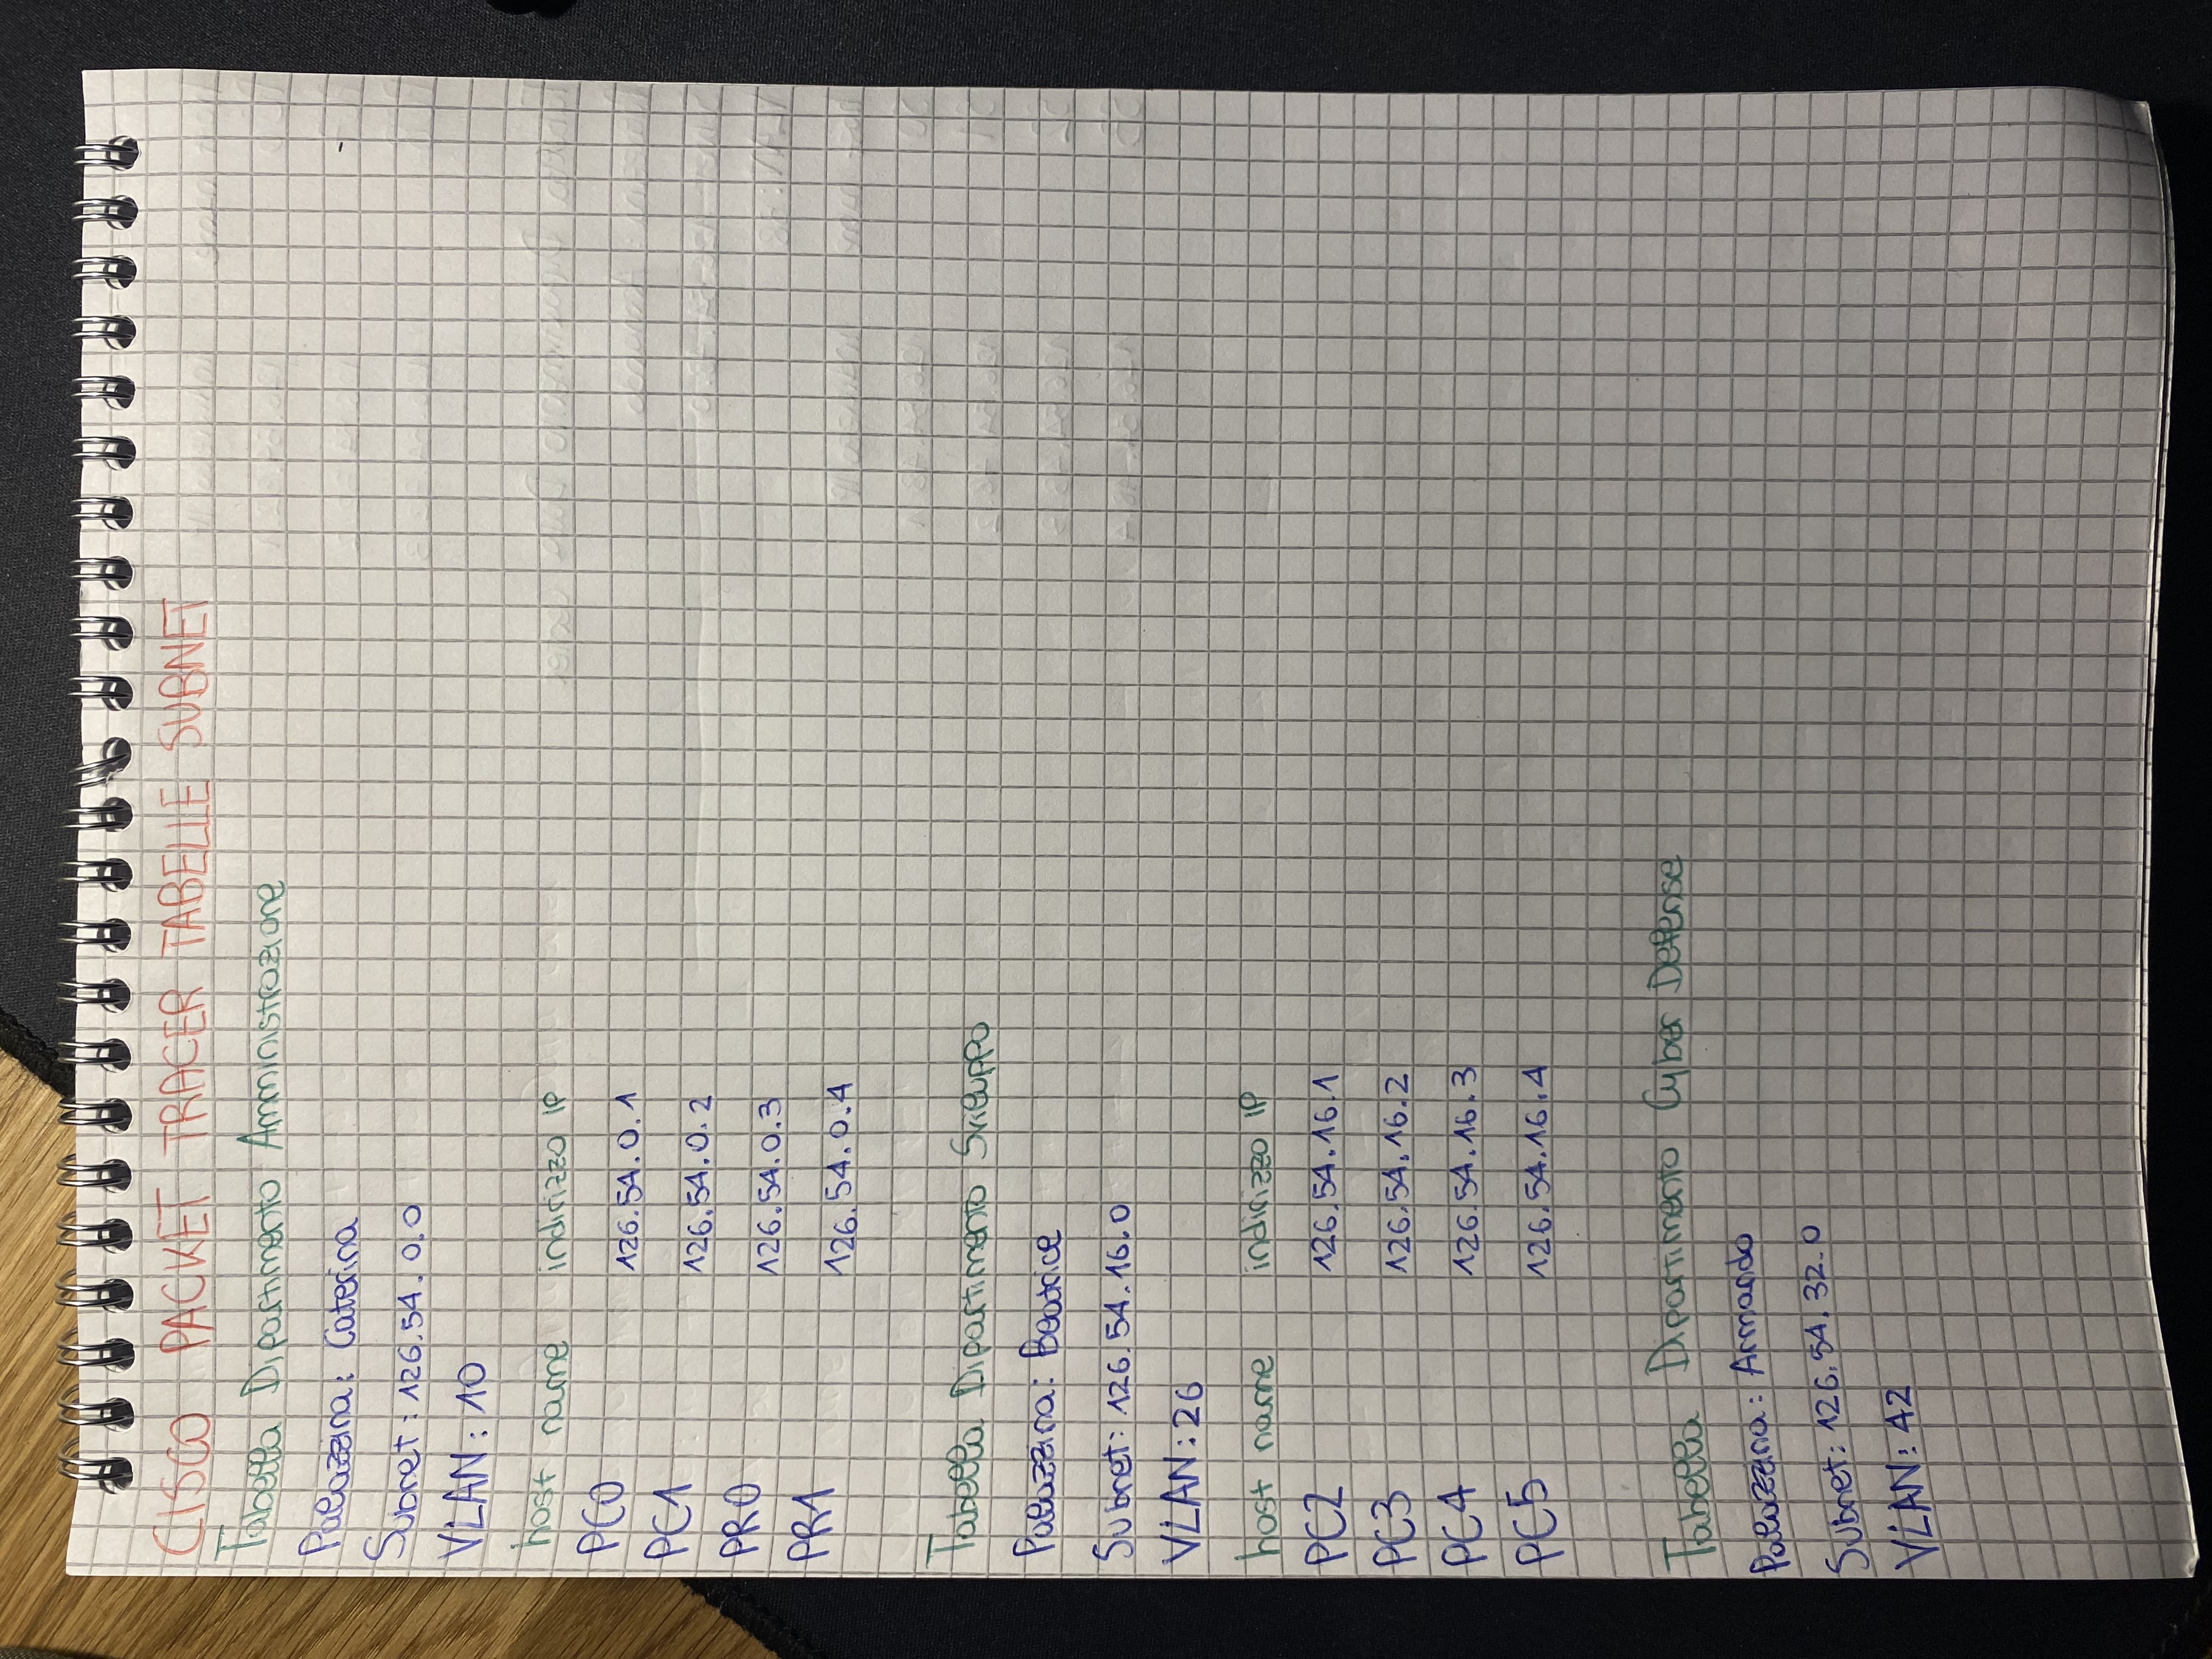 CISCO PACKET TRACER TABELLE SUBNET
Tabella Dipartimento Amministrazione
Palazzina: Caterina
Subnet: 126.54.0.0
VLAN: 10
host name indirizzo IP
PC0 126.54.0.1
PC1 126.54.0.2
PR0 126.54.0.3
PR1 126.54.0.4
Tabella Dipartimento Sviluppo
Palazzina: Beatrice
Subnet: 126.54.16.0
VLAN: 26
host name indirizzo IP
PC2 126.54.16.1
PC3 126.54.16.2
PC4 126.54.16.3
PC5 126.54.16.4
Tabella Dipartimento Cyber Defense
Palazzina: Armando
Subnet: 126.54.32.0
VLAN: 42